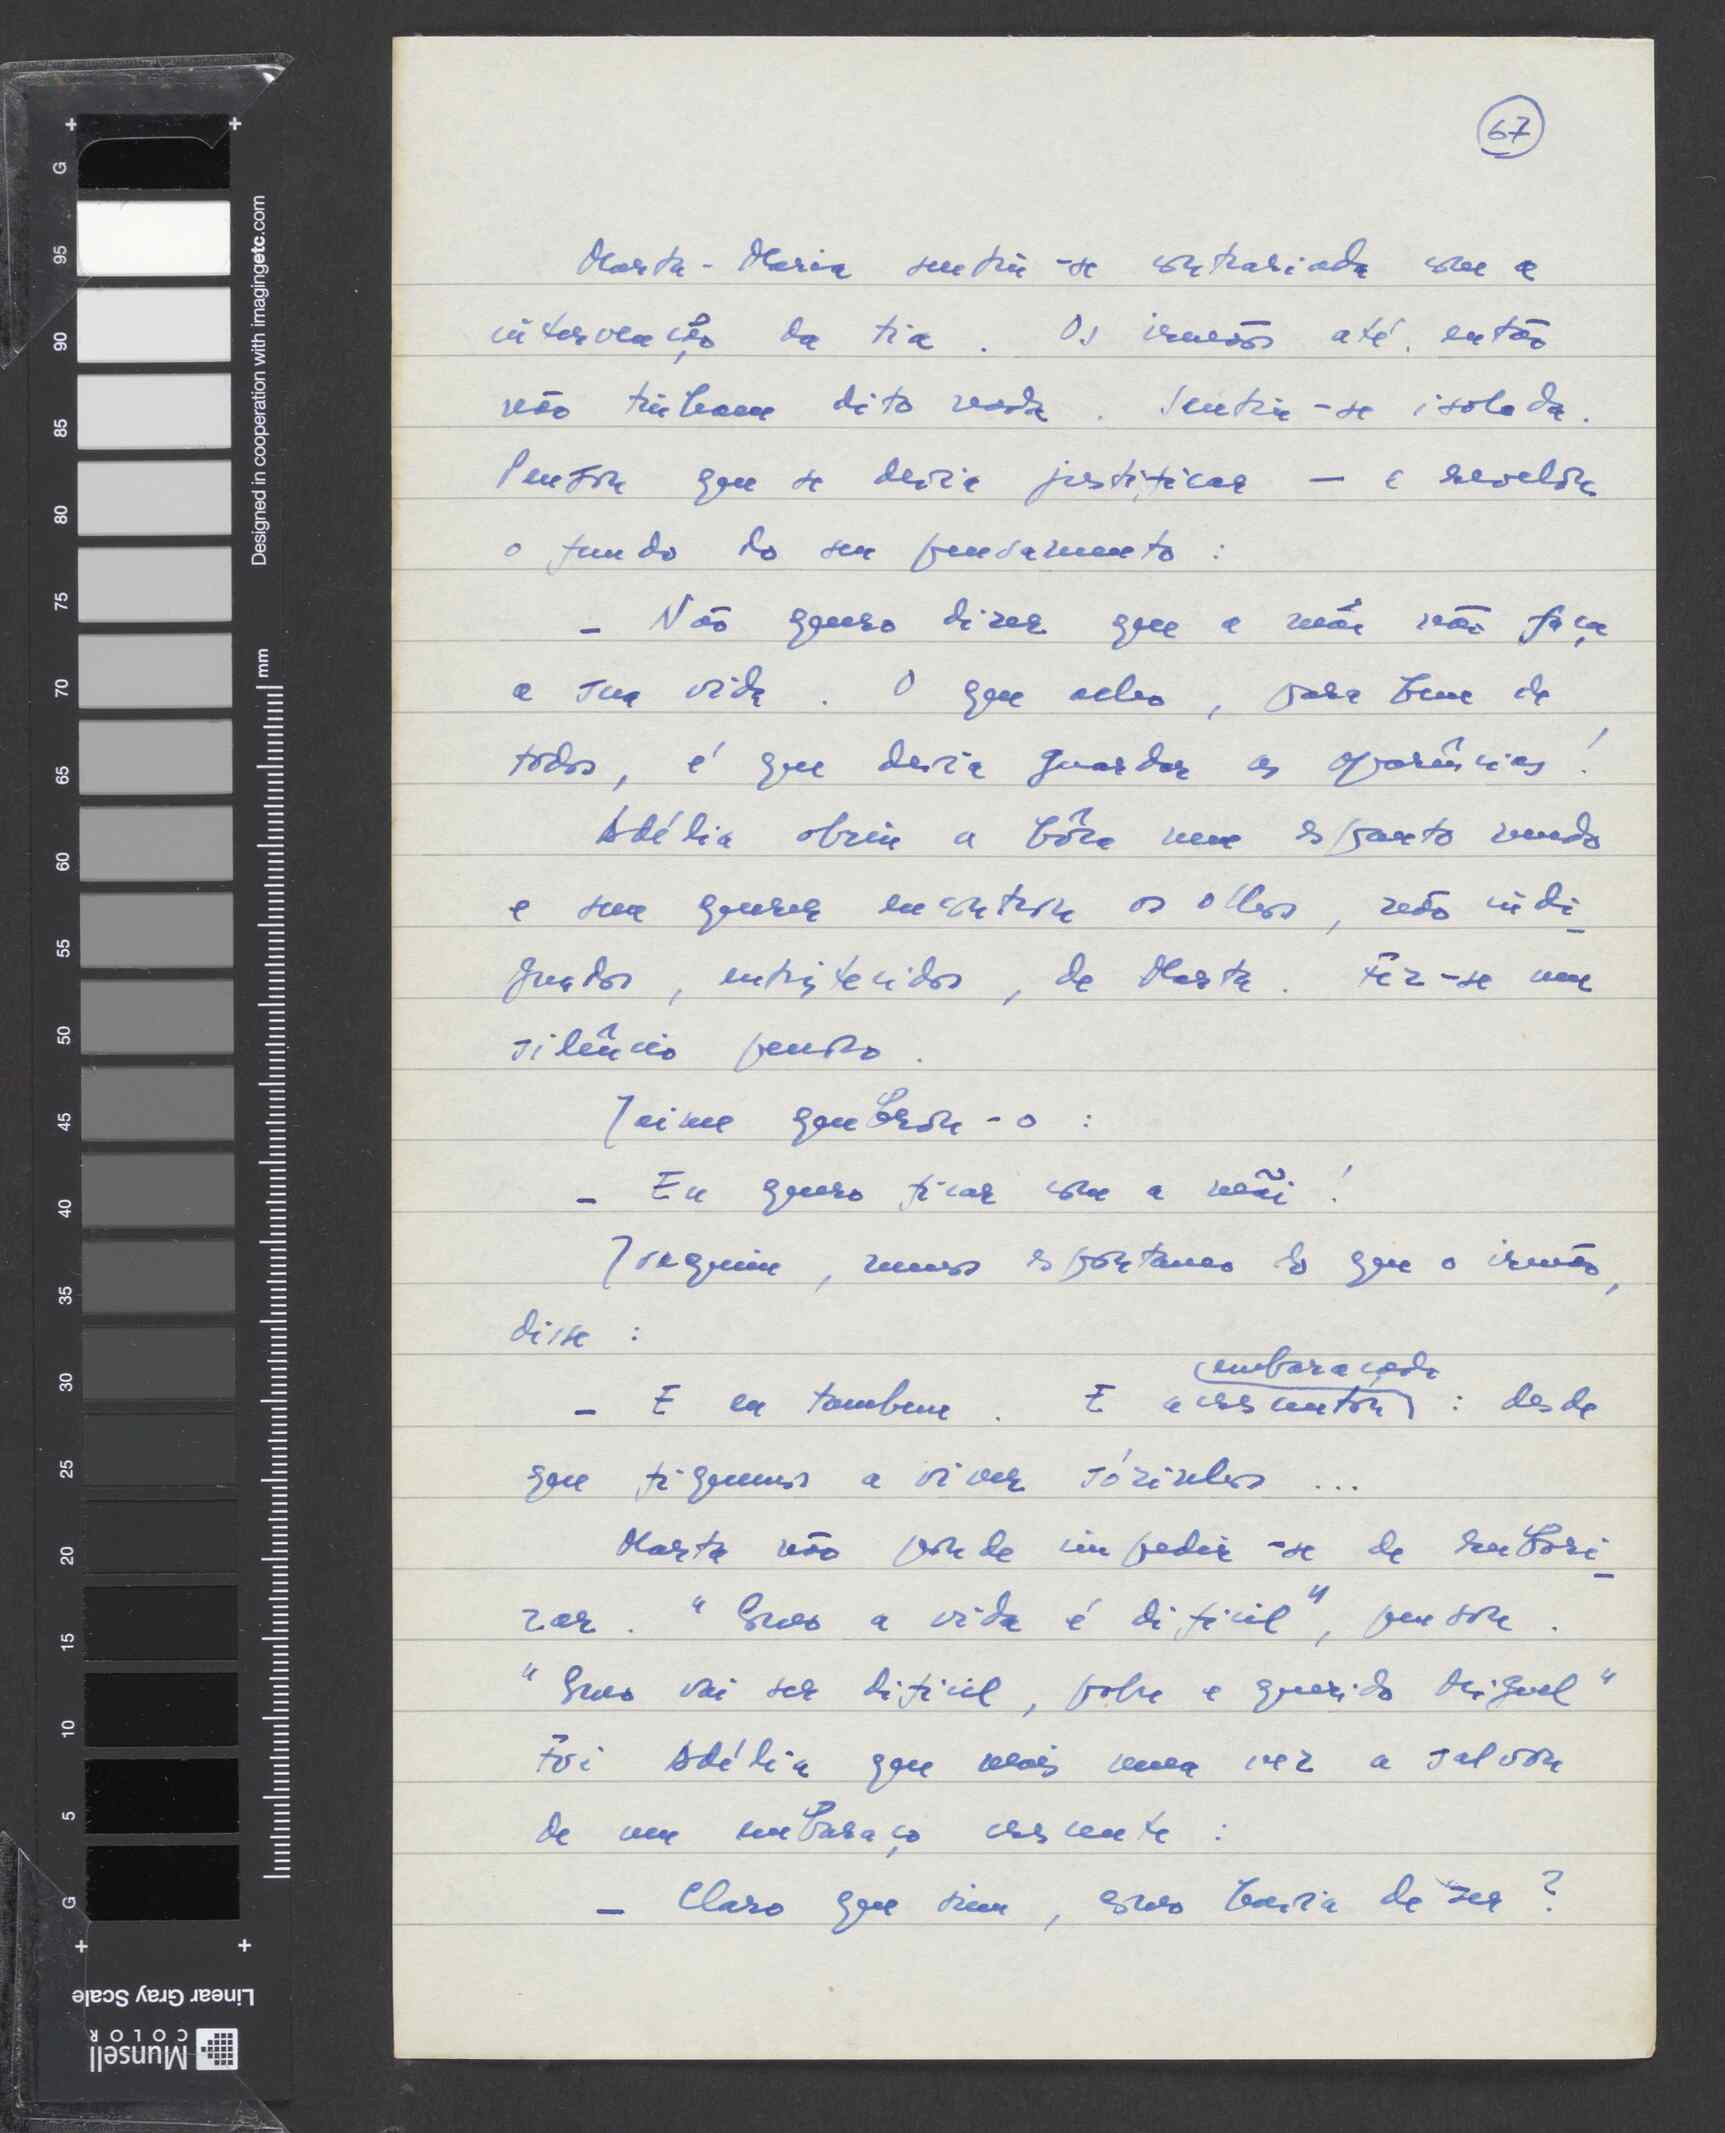 67
Marta-Maria sentiu-se contrariada com a
intervenção da tia. Os irmãos até então
não tinham dito nada. Sentiu-se isolada.
Pensou que se devia justificar — e revelou
o fundo do seu pensamento:
— Não quero dizer que a mãe não faça
a sua vida. O que acho, para bem de
todos, é que devia guardar as aparências!
Adélia abriu a bôca num espanto mudo
e sem querer encontrou os olhos, não indi-
gnados, entristecidos, de Marta. Fêz-se um
silêncio penoso.
Jaime quebrou-o:
— Eu quero ficar com a mãi!
Joaquim, menos espontaneo do que o irmão,
disse:
embaraçada
— E eu tambem. E acrescentou: desde
que fiquemos a viver sózinhos...
Marta não poude impedir-se de rubori-
zar. "Como a vida é dificil", pensou.
"Como vai ser dificil, pobre e querido Miguel"
Foi Adélia que mais uma vez a salvou
de um embaraço crescente:
— Claro que sim, como havia de ser?
G
95
90
85
80
75
70
65
60
55
50
45
40
35
30
25
20
15
10
5
G
mm
Designed in cooperation with imagingetc.com
Linear Gray Scale
Munsell
COLOR